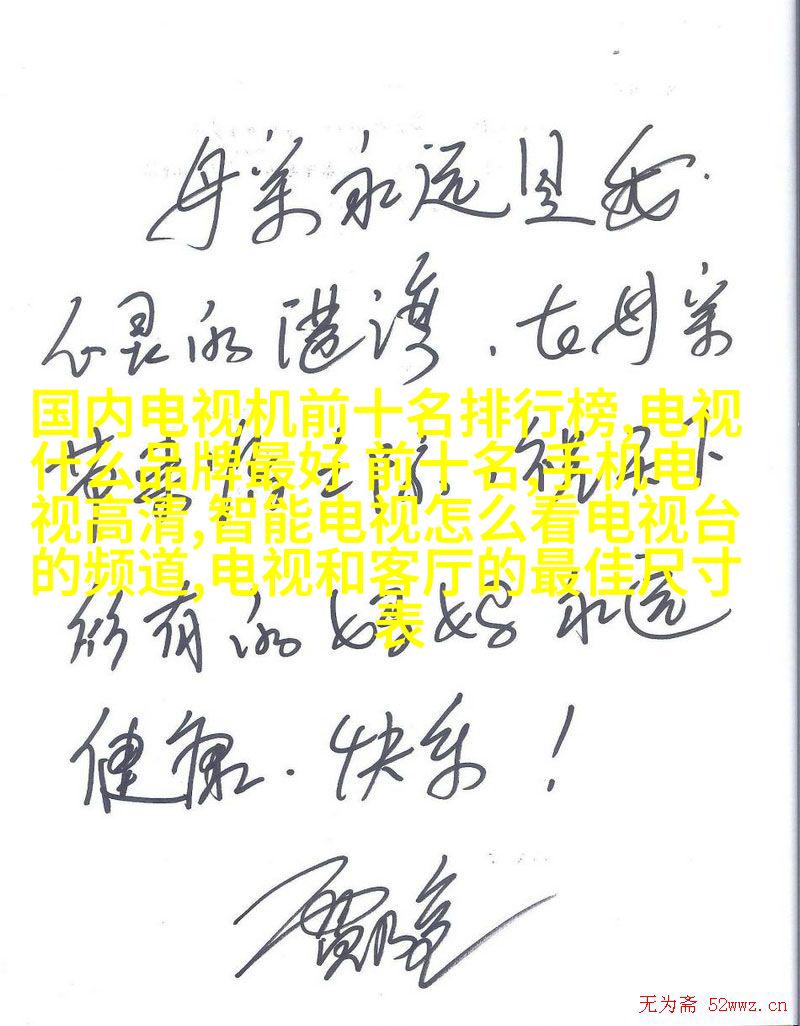 母亲永远是我
心灵的港湾，在母亲
国内电视机前十名排行榜,电视
什么品牌最好 前十名,手机电
视高清,智能电视怎么看电视台
的频道,电视和客厅的最佳尺寸
表
所有的妈妈永远
健康、快乐！
无为斋 52wwz.cn